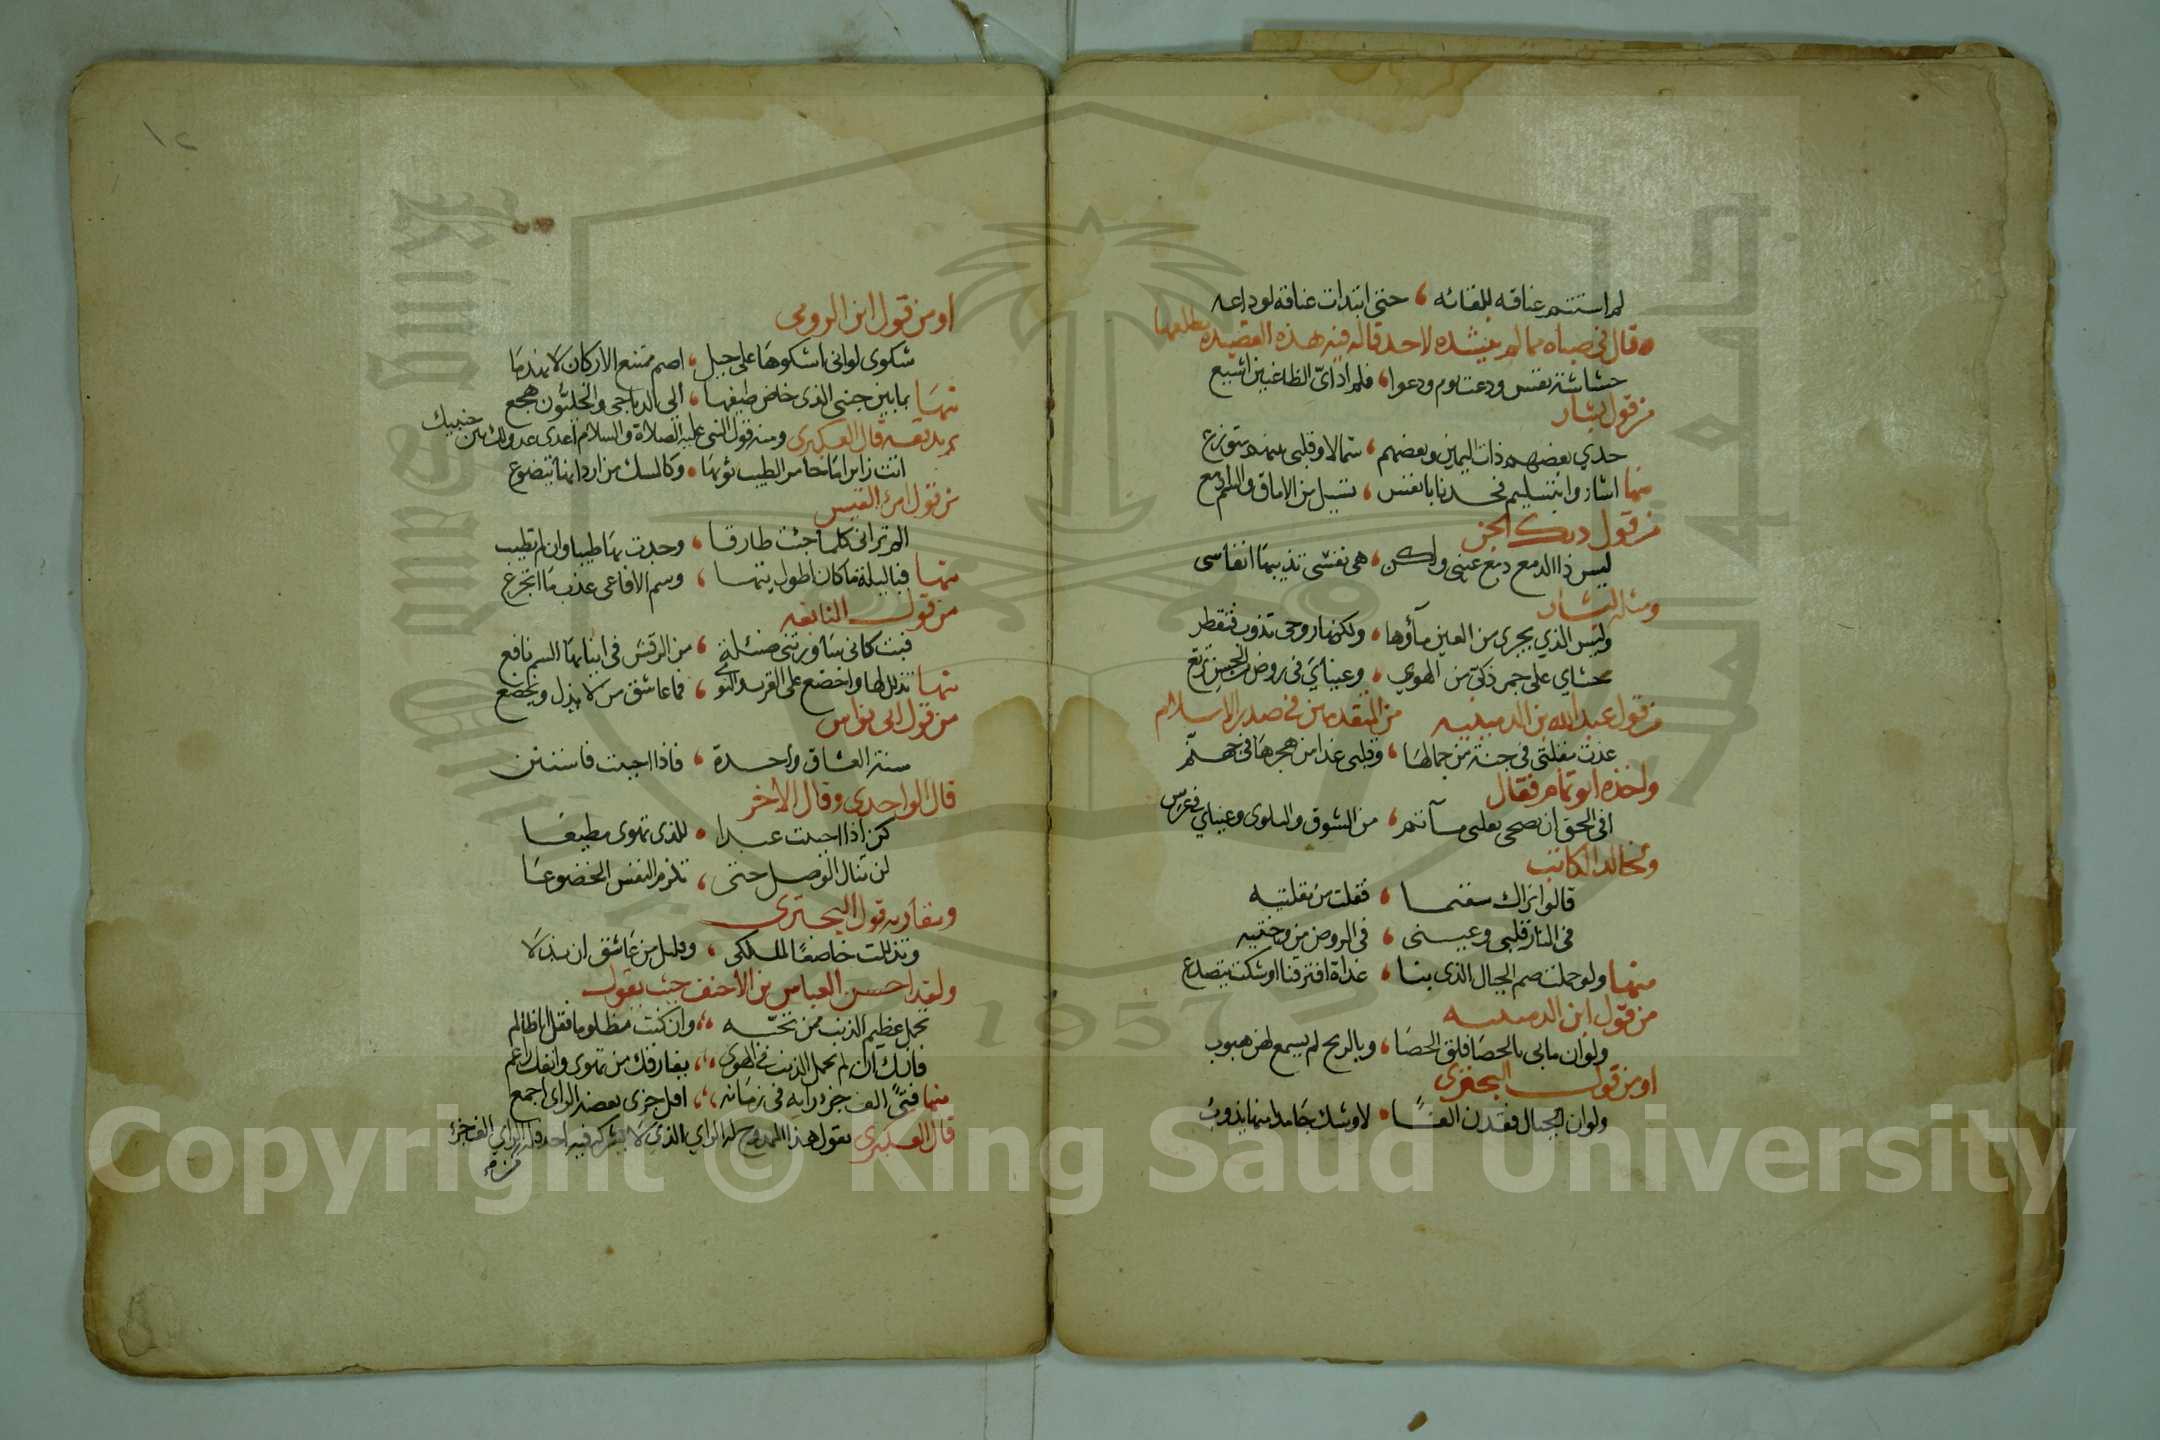 لم استتم عناقه للقائه ، حتى ابتدات عناقه لوداعه
وقال في صباه مما لم ينشده لاحد قاله فيه هذه القصيدة مطلعها
حشاشة نفس ودعت يوم ودعوا ، فلم ادر اى الظاعنين اشيع
من قول بشار
حدي بعضهم ذات اليمين وبعضهم ، شمالا وقلبى بينهم متوزع
منها اشاروا بتسليم فجدنا بانفس ، تسيل من الاماق والسم ادمع
من قول ديك الجن
ليس ذا الدمع دمع عينى ولكن ، هى نفسى تذيبها انفاسى
ومثله لبشار
وليس الذي يجرى من العين ماؤها ، ولكنها روحى تذوب فتقطر
حشاي على جمر ذكى من الهوي ، وعيناي في روض الحسن ترتع
من قول عبد الله بن الدمينيه من المتقدمين في صدر الاسلام
غدت مقلتى في جنة من جمالها ، وقلبى غدا من هجرها في جهنم
واخذه ابو تمام فقال
افى الحق ان يضحى بقلبى مآتم ، من الشوق والبلوى وعيناي في عرس
ولخالد الكاتب
قالوا نراك سقيما ، فقلت من مقلتيه
في النار قلبى وعينى ، في الروض من وجنتيه
منها ولو حملت صم الجبال الذى بنا ، غداة افترقنا اوشكت تتصدع
من قول ابن الدمينيه
ولو ان ما بى بالحصا فلق الحصا ، وبالريح لم يسمع لهن هبوب
او من قول البحترى
ولو ان الجبال فقدن الفا ، لاوشك جامد منها يذوب
١٢
او من قول ابن الرومى
شكوى لو انى اشكوها على جبل ، اصم ممتنع الاركان لانهدما
منها بما بين جنبى الذى خاض طيفها ، الى الدياجى والخليون هجع
يريد نفسه قال العكبرى ومنه قول النبى عليه الصلاة والسلام اعدى عدو لك بين جنبيك
اتت زائرا ما خامر الطيب ثوبها ، وكالمسك من اردانها يتضوع
من قول امرئ القيس
الم تر انى كلما جئت طارقا ، وجدت بها طيبا وان لم تطيب
منها فيا ليلة ما كان اطول بتها ، وسم الافاعى عذب ما اتجرع
من قول النابغه
فبت كانى ساورتنى ضئيلة ، من الرقش فى انيابها السم ناقع
منها تذلل لها واخضع على القرب والنوى ، فما عاشق من لا يذل ويخضع
من قول ابى نواس
سنة العشاق واحدة ، فاذا احببت فاستنن
قال الواحدى وقال الاخر
كن اذا احببت عبدا ، للذى تهوى مطيعا
لن تنال الوصل حتى ، تلزم النفس الخضوعا
ومقاربه قول البحترى
وتذللت خاضعا لمليكى ، وقليل من عاشق ان يذلا
ولقد احسن العباس بن الاحنف حيث يقول
تحمل عظيم الذنب ممن تحبه ، وان كنت مظلوما فقل انا ظالم
فانك ان لم تحمل الذنب فى الهوى ، يفارقك من تهوى وانفك راغم
منها فتى الف جزء رايه فى زمانه ، اقل جزى بعضه الراى اجمع
قال العكبرى يقول هذا الممدوح له الراي الذي لا يشركه فيه احد وله الراي الف جزء
Copyright © King Saud University
King Saud University
1957